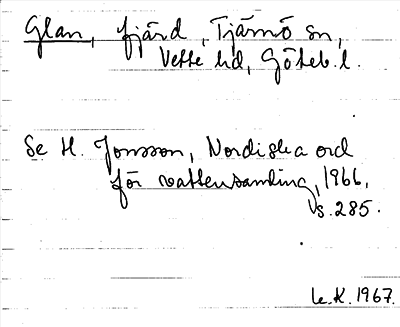 Glan, fjärd, Tjärnö sn,
Vette hd, Göteb. l.
Se H. Jonsson, Nordiska ord
för vattensamling, 1966,
s. 285.
L.K. 1967.